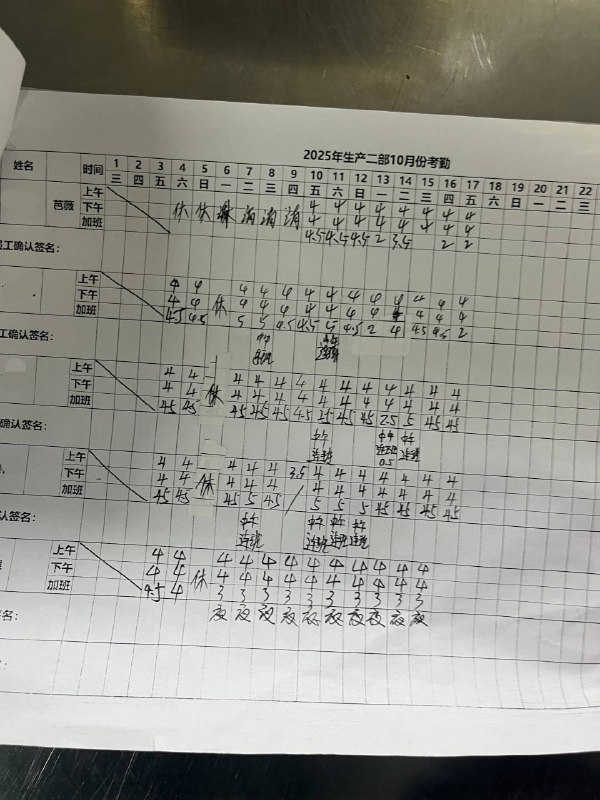 2025年生产二部10月份考勤
姓名 时间 1 2 3 4 5 6 7 8 9 10 11 12 13 14 15 16 17 18 19 20 21 22
三 四 五 六 日 一 二 三 四 五 六 日 一 二 三 四 五 六 日 一 二 三
上午 4 4 4 4 4 4 4 4
芭薇 下午 休 休 4 4 4 4 4 4 4 4
加班 4.5 4.5 4.5 2 3.5 2 2
工确认签名:
上午 4 4 4 4 4 4 4 4 4 4 4 4 4
下午 4 4 休 4 4 4 4 4 4 4 4 4 4 4
加班 4.5 4.5 5 5 4.5 4.5 5 4.5 2 4 4.5 4.5 2
中午
工确认签名:
上午 4 4 4 4 4 4 4 4 4 4 4 4 4
下午 4 4 休 4 4 4 4 4 4 4 4 4 4 4
加班 4.5 4.5 4.5 4.5 4.5 4.5 2.5 4.5 4.5 2.5 5 4.5 4.5
确认签名: 中午 中午 中午
连班 连班 连班
0.5
上午 4 4 4 4 4 3.5 4 4 4 4 4 4 4
下午 4 4 休 4 4 4 4 4 4 4 4 4 4
加班 4.5 4.5 4.5 5 4.5 5 5 5 4.5 4.5 4.5 4.5
认签名: 中午 中午 中午 中午
连班 连班 连班 连班
上午 4 4 4 4 4 4 4 4 4 4 4 4
下午 4 4 休 4 4 4 4 4 4 4 4 4 4
加班 4.5 4 3 3 3 3 3 3 3 3 3 3
名: 夜 夜 夜 夜 夜 夜 夜 夜 夜 夜